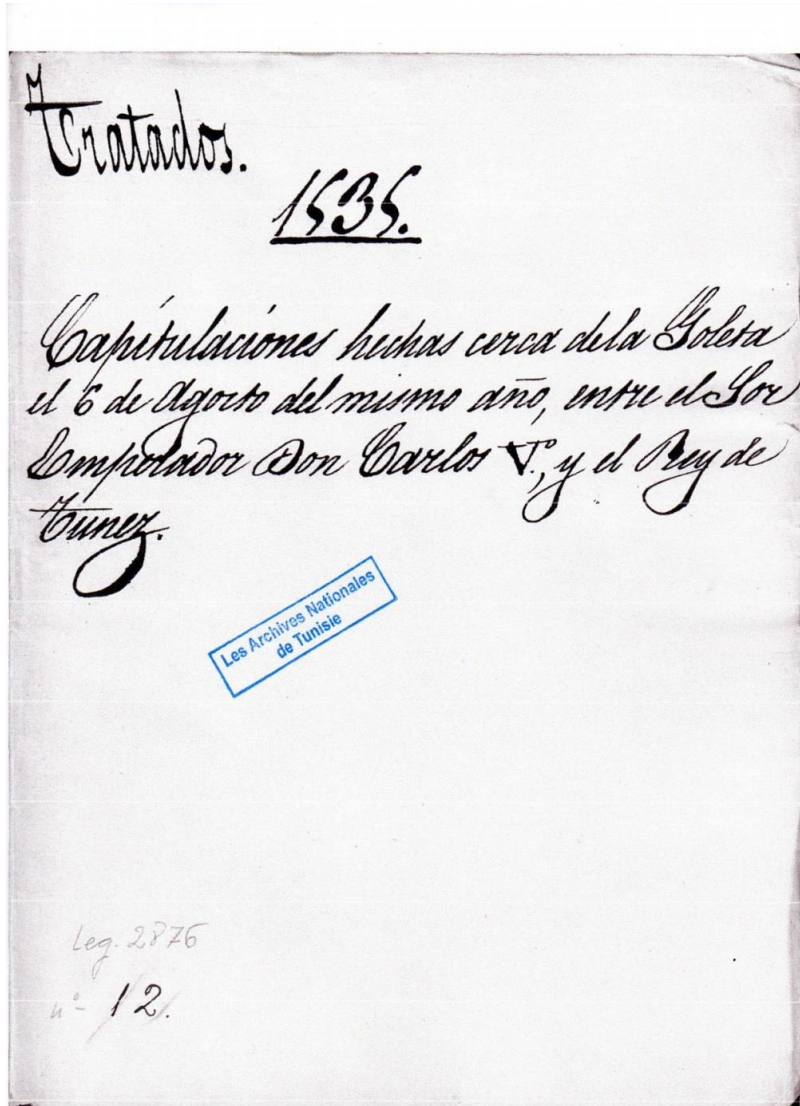 Tratados.
1535.
Capitulaciones hechas cerca de la Goleta
el 6 de Agosto del mismo año, entre el Sor
Emperador Don Carlos Vº, y el Rey de
Tunez.
Les Archives Nationales
de Tunisie
Leg. 2876
nº- 12.